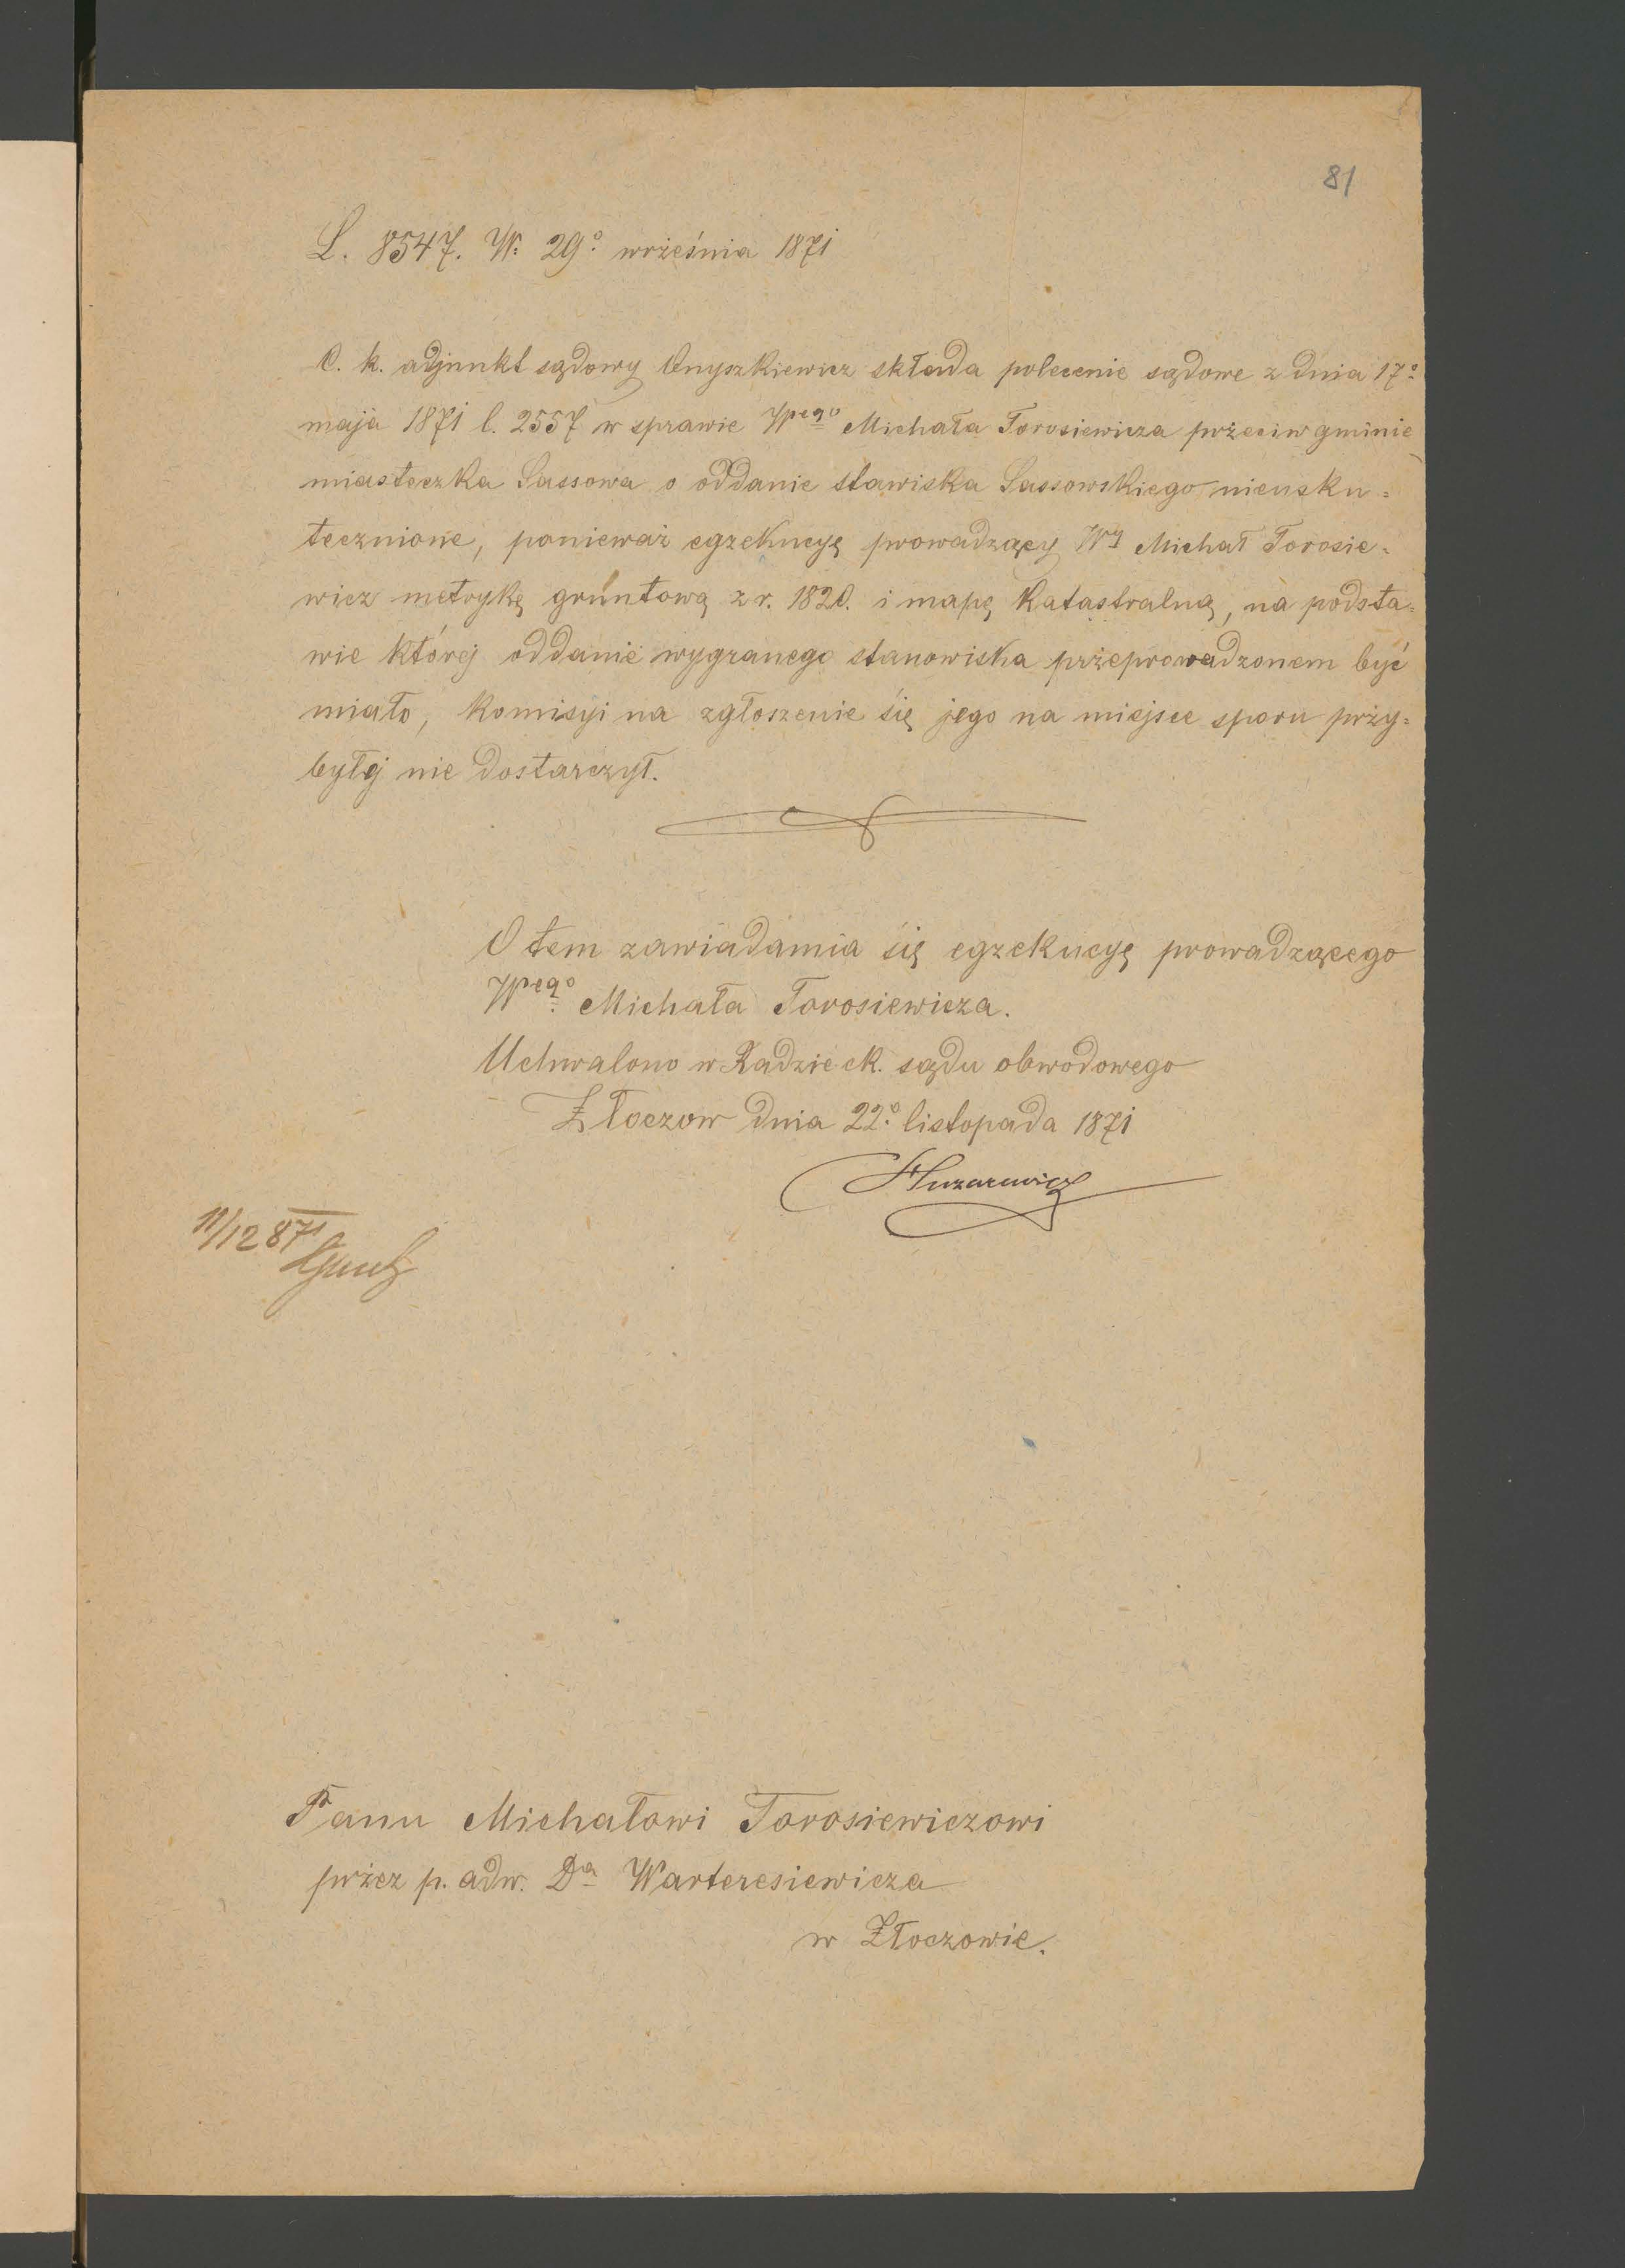 81
L. 8547. W. 29° września 1871
C. k. adjunkt sądowy Onyszkiewicz składa polecenie sądowe z dnia 17°
maja 1871 l. 2557 w sprawie Wpego Michała Torosiewicza przeciw gminie
miasteczka Sassowa o oddanie stawiska Sassowskiego nieusku=
tecznione, ponieważ egzekucyę prowadzący Wy Michał Torosie=
wicz metrykę gruntową z r. 1820. i mapę katastralną, na podsta=
wie której oddanie wygranego stanowiska przeprowadzonem być
miało, komisyi na zgłoszenie się jego na miejsce sporu przy=
byłej nie dostarczył.
O tem zawiadamia się egzekucyę prowadzącego
Wpego Michała Torosiewicza.
Uchwalono w Radzie ck. sądu obwodowego
Złoczow dnia 22° listopada 1871
11/12 871
Panu Michałowi Torosiewiczowi
przez p. adw. Dra Warteresiewicza
w Złoczowie.